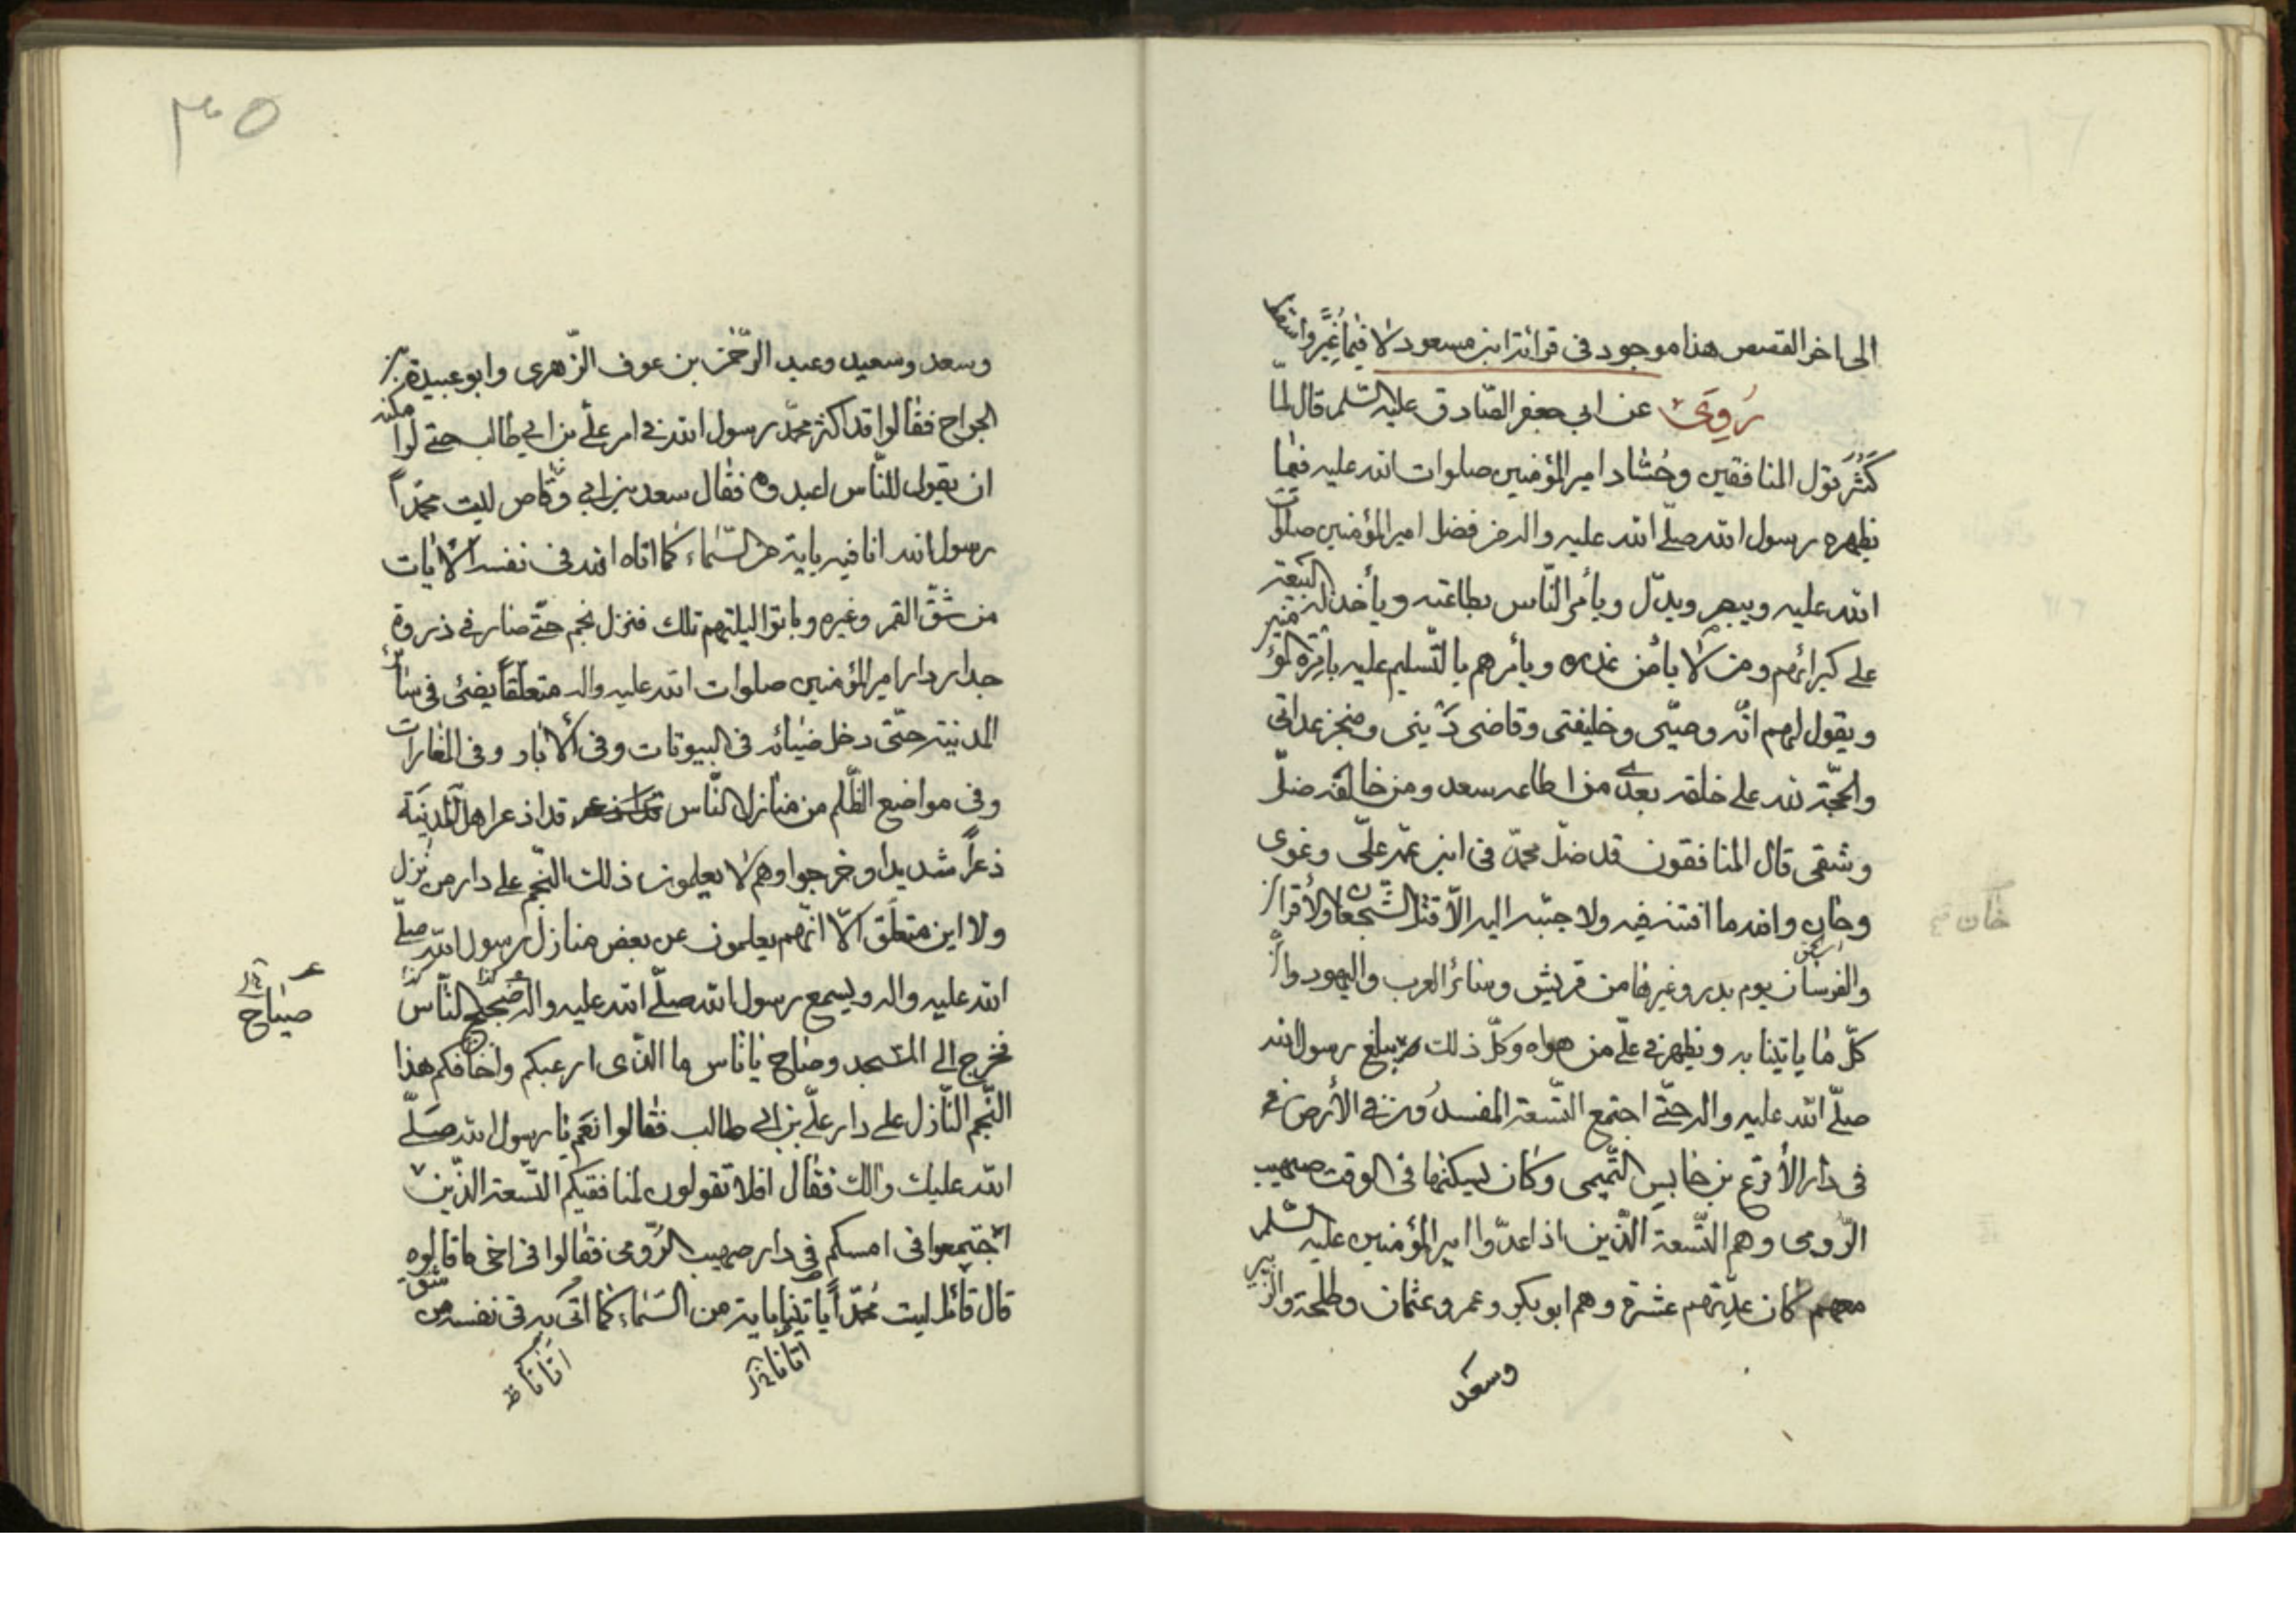 الى اخر القصص هذا موجود فى قرائة ابن مسعود لا فيما غُيّر واسقط
رُوِىَ عن ابى جعفر الصّادق عليه السّلم قال لمّا
كَثُرَ قول المنافقين وحُسّاد امير المؤمنين صلوات الله عليه فيما
يظهره رسول الله صلّى الله عليه واله من فضل امير المؤمنين صلوات
الله عليه ويبصر ويدلّ ويأمر النّاس بطاعته ويأخذ البيعة له
على كبرائهم ومن لا يأمن غدره ويأمرهم بالتّسليم عليه بامرة المؤمنين
ويقول لهم انّه وصيّى وخليفتى وقاضى دَينى ومنجز عداتى
والحجّة لله على خلقه بعدى من اطاعه سعد ومن خالفه ضلّ
وشقى قال المنافقون قد ضلّ محمّد فى ابن عمّه علىّ وغوى
وخان والله ما افتنه فيه ولا حبّبه اليه الّا قتل الشّجعان والأقران
والفرسان يوم بدر وغيرها من قريش وسائر العرب واليهود وانّ
كلّ ما ياتينا به ويظهر فى علىّ من هواه وكلّ ذلك يبلغ رسول الله
صلّى الله عليه واله حتّى اجتمع التّسعة المفسدون فى الأرض
فى دار الأقرع بن حابس التّميمى وكان يسكنها فى الوقت صهيب
الرّومى وهم التّسعة الّذين اذا عدّوا امير المؤمنين عليه السّلم
معهم كان عدّتهم عشرة وهم ابو بكر وعمر وعثمان وطلحة والزبير
وسعد
خان
٣٥
وسعد وسعيد وعبد الرّحمن بن عوف الزّهرى وابو عبيدة بن
الجراح فقالوا قد اكثر محمّد رسول الله فى امر علىّ بن ابى طالب حتى لو امكنه
ان يقول للنّاس اعبدوه فقال سعد بن ابى وقّاص ليت محمّداً
رسول الله اتانا فيه باية من السّماء كما اتاه الله فى نفسه الايات
من شقّ القمر وغيره وباتوا ليلتهم تلك فنزل نجم حتّى صار فى ذروة
جدار دار امير المؤمنين صلوات الله عليه واله متعلّقاً يضئ فى سائر
المدينة حتّى دخل ضيائه فى البيوتات وفى الأبار وفى المغارات
وفى مواضع الظّلم من منازل النّاس قد اذعر اهل المدينة
ذعراً شديدا وخرجوا وهم لا يعلمون ذلك النّجم على دار من نزل
ولا اين متعلّق الّا انّهم يعلمون عن بعض منازل رسول الله صلّى
الله عليه واله ويسمع رسول الله صلّى الله عليه واله ضجيج النّاس
صياح
فخرج الى المسجد وصاح يا ناس ما الّذى ارعبكم واخافكم هذا
النّجم النّازل على دار علىّ بن ابى طالب فقالوا نعم يا رسول الله صلّى
الله عليك والك فقال افلا تقولون لمنافقيكم التّسعة الّذين
اجتمعوا فى امسكم فى دار صهيب الرّومى فقالوا فى اخى ما قالوه
قال قائل ليت محمّداً ياتينا باية من السّماء كما اتى به فى نفسه من شقّ
اتانا
اتانا